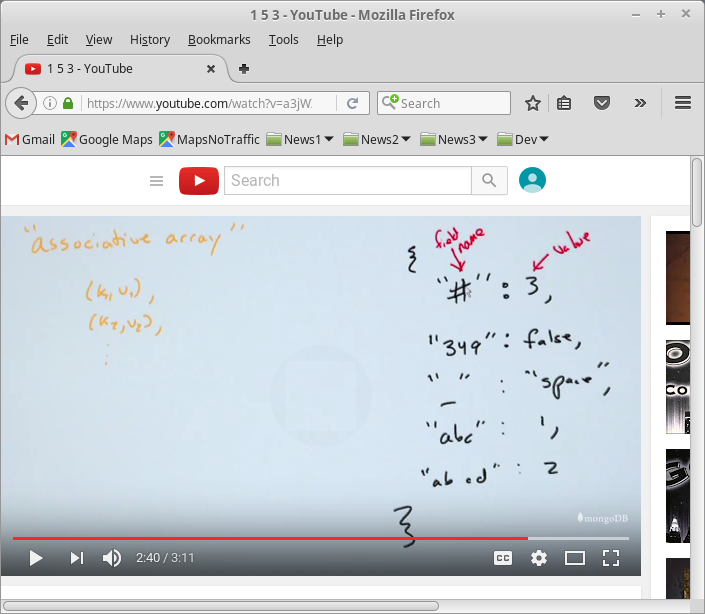 1 5 3 - YouTube - Mozilla Firefox
File Edit View History Bookmarks Tools Help
1 5 3 - YouTube
https://www.youtube.com/watch?v=a3jW
Search
Gmail Google Maps MapsNoTraffic News1 News2 News3 Dev
Search
"associative array"
(k1,v1),
(k2,v2),
:
{
field name
value
"#" : 3,
"349" : false,
"_" : "space",
"abc" : 1,
"ab cd" : 2
}
mongoDB
2:40 / 3:11
CC